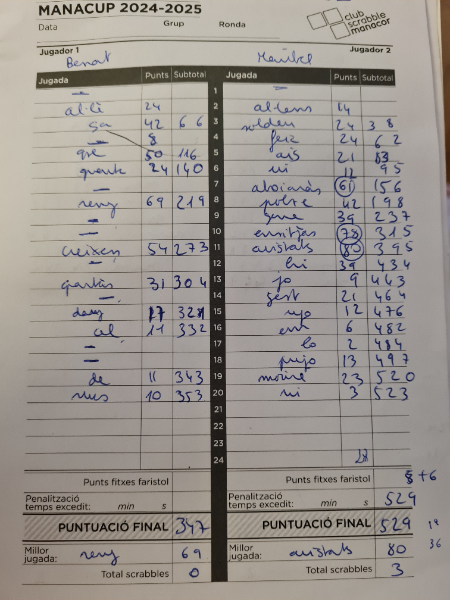 MANACUP 2024-2025
club scrabble manacor
Data Grup Ronda
Jugador 1 Jugador 2
Benat
Jugada Punts Subtotal Jugada Punts Subtotal
— 1 —
al·là 24 2 allens 14
sa 42 66 3 solden 24 38
— 8 4 feia 24 62
que 50 116 5 ais 21 83
quants 24 140 6 ui 12 95
— 7 61 156
reny 69 219 8 poltre 42 198
— 9 gene 39 237
— 10 enritjas 78 315
creixen 54 273 11 auistats 80 395
— 12 hi 39 434
gastàs 31 304 13 jo 9 443
— 14 gest 21 464
daus 17 321 15 ujo 12 476
cal 11 332 16 em 6 482
— 17 lo 2 484
— 18 pujo 13 497
de 11 343 19 moriré 23 520
mus 10 353 20 ni 3 523
21
22
23
24
Punts fitxes faristol Punts fitxes faristol +6
Penalització temps excedit: min s Penalització temps excedit: min s 529
PUNTUACIÓ FINAL 347 PUNTUACIÓ FINAL 529
Millor jugada: reny 69 Millor jugada: auistats 80 36
Total scrabbles 0 Total scrabbles 3